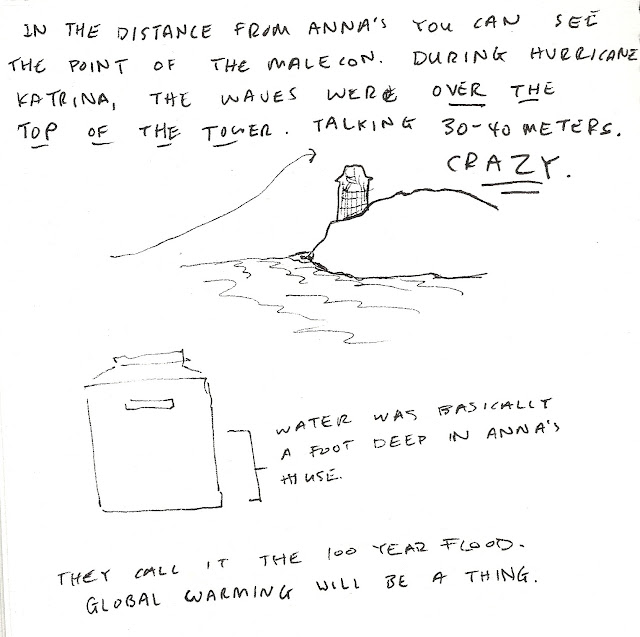 IN THE DISTANCE FROM ANNA'S YOU CAN SEE
THE POINT OF THE MALECON. DURING HURRICANE
KATRINA, THE WAVES WERE OVER THE
TOP OF THE TOWER. TALKING 30-40 METERS.
CRAZY.
WATER WAS BASICALLY
A FOOT DEEP IN ANNA'S
HOUSE.
THEY CALL IT THE 100 YEAR FLOOD.
GLOBAL WARMING WILL BE A THING.